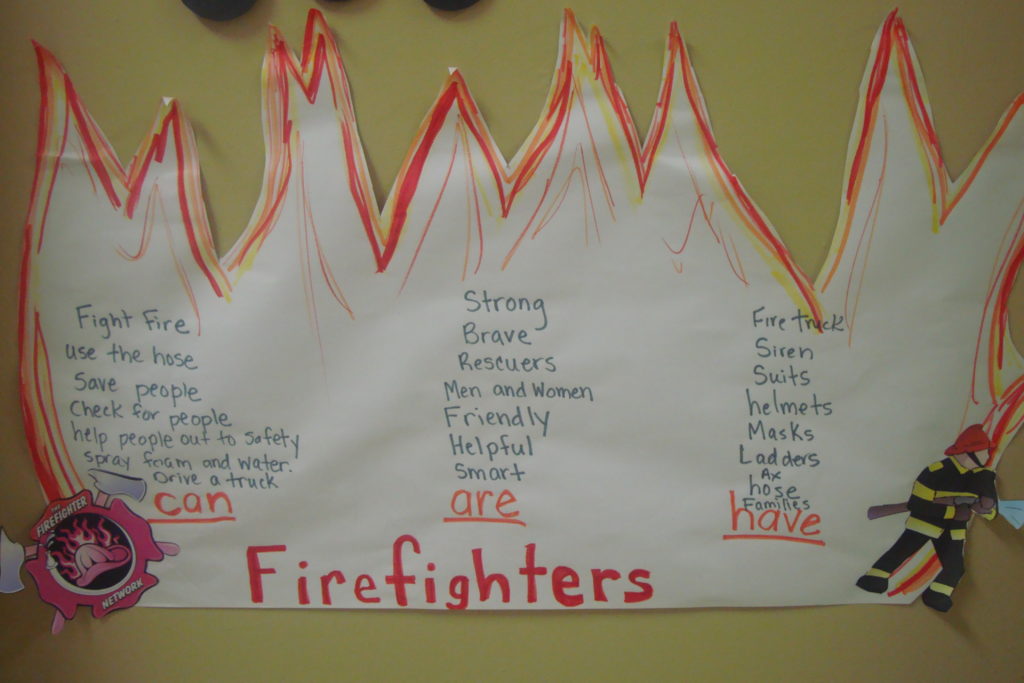 Fight Fire
use the hose
Save people
Check for people
help people out to safety
spray foam and water.
Drive a truck
can
Strong
Brave
Rescuers
Men and Women
Friendly
Helpful
Smart
are
Fire truck
Siren
Suits
helmets
Masks
Ladders
Ax
hose
Families
have
Firefighters
THE
FIREFIGHTER
NETWORK